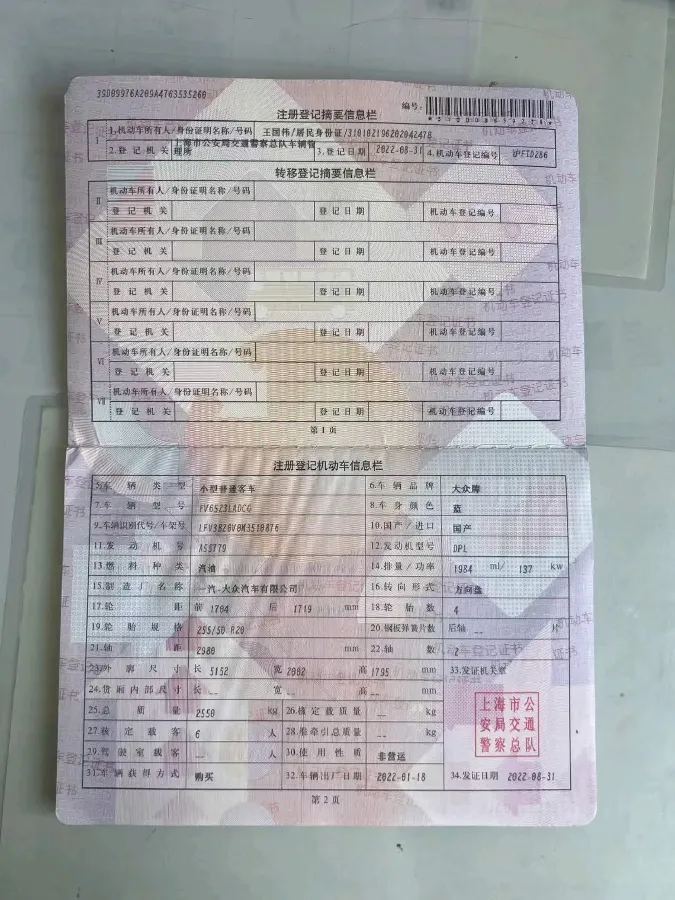 39D09976A209A4763535260
编号:
注册登记摘要信息栏
I 1.机动车所有人/身份证明名称/号码 王国伟/居民身份证/310102196202042478
2.登记机关 上海市公安局交通警察总队车辆管理所 3.登记日期 2022-08-31 4.机动车登记编号 沪FTD286
转移登记摘要信息栏
II 机动车所有人/身份证明名称/号码
登记机关 登记日期 机动车登记编号
III 机动车所有人/身份证明名称/号码
登记机关 登记日期 机动车登记编号
IV 机动车所有人/身份证明名称/号码
登记机关 登记日期 机动车登记编号
V 机动车所有人/身份证明名称/号码
登记机关 登记日期 机动车登记编号
VI 机动车所有人/身份证明名称/号码
登记机关 登记日期 机动车登记编号
VII 机动车所有人/身份证明名称/号码
登记机关 登记日期 机动车登记编号
第1页
注册登记机动车信息栏
5.车辆类型 小型普通客车 6.车辆品牌 大众牌
7.车辆型号 FV6523LADCG 8.车身颜色 蓝
9.车辆识别代号/车架号 10.国产/进口 国产
11.发动机号 12.发动机型号 DPL
13.燃料种类 汽油 14.排量/功率 1984 ml/ 137 kw
15.制造厂名称 一汽-大众汽车有限公司 16.转向形式 方向盘
17.轮距 前 1704 后 1719 mm 18.轮胎数 4
19.轮胎规格 255/50 R20 20.钢板弹簧片数 后轴 -- 片
21.轴距 2980 mm 22.轴数 2
23.外廓尺寸 长 5152 宽 2002 高 1795 mm 33.发证机关章
24.货厢内部尺寸 长 -- 宽 -- 高 -- mm
25.总质量 2550 kg 26.核定载质量 -- kg
27.核定载客 6 人 28.准牵引总质量 -- kg
29.驾驶室载客 -- 人 30.使用性质 非营运
31.车辆获得方式 购买 32.车辆出厂日期 2022-01-18 34.发证日期 2022-08-31
上海市公
安局交通
警察总队
第2页